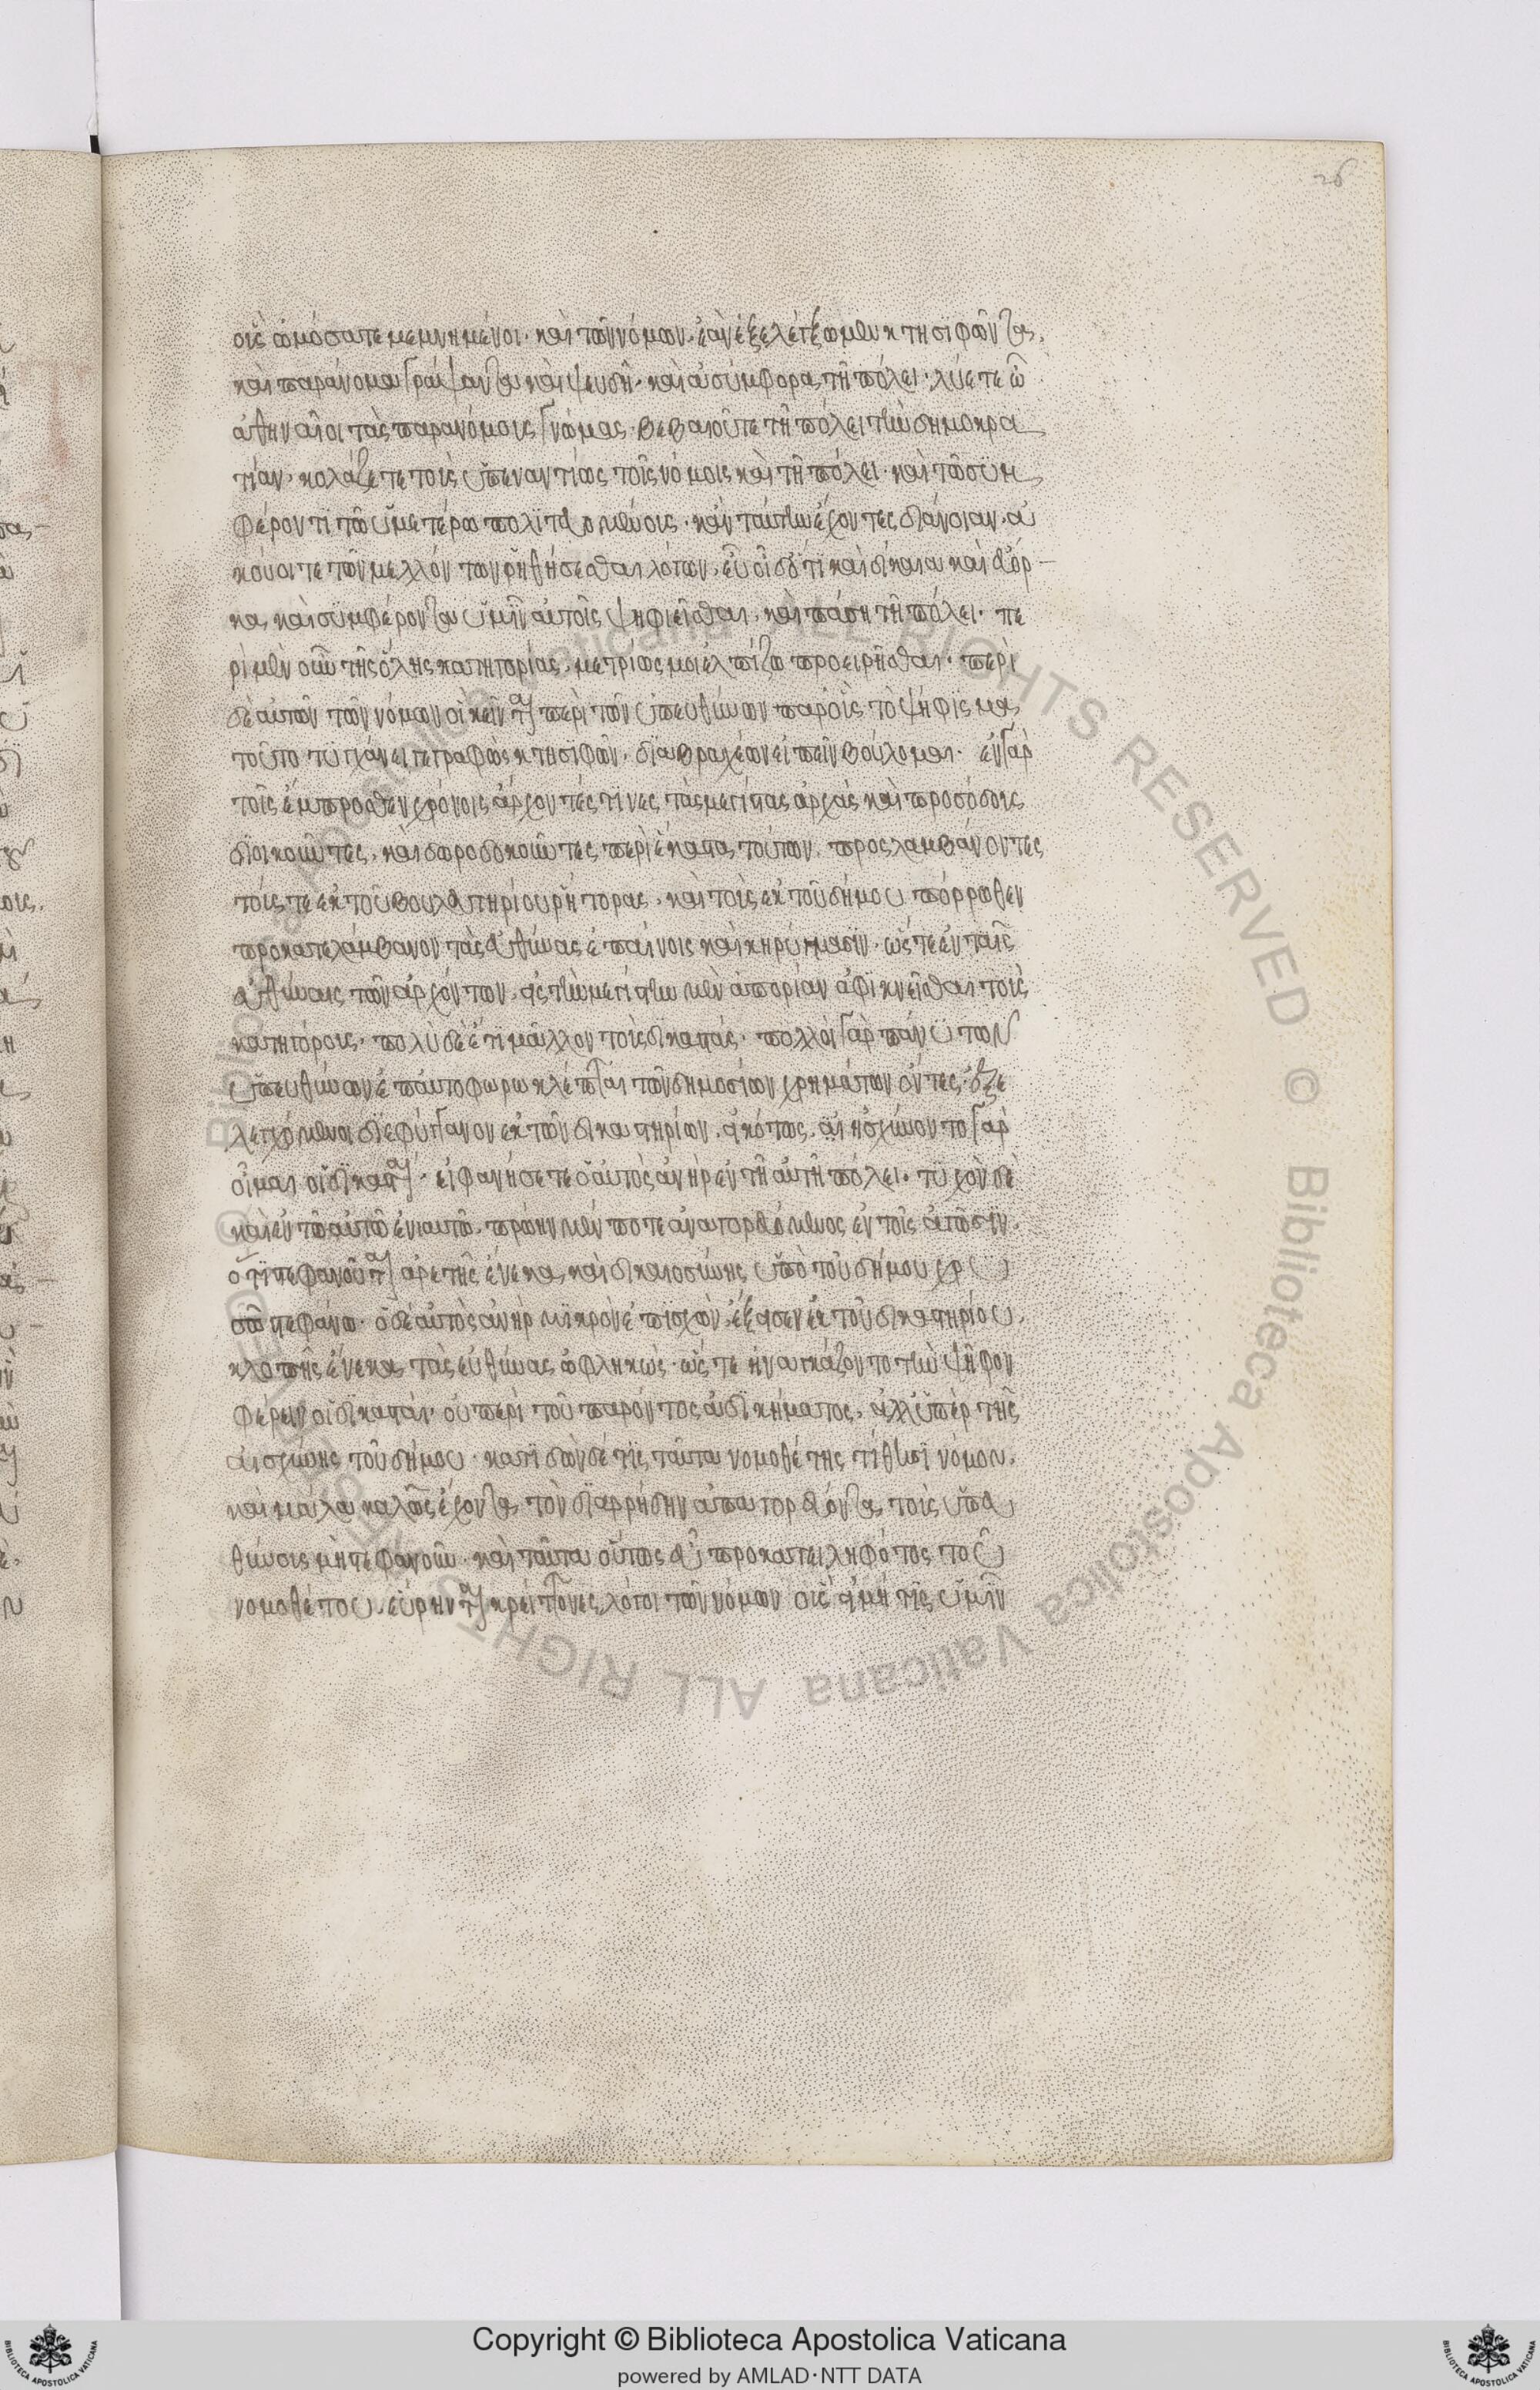 26
οὓς ὠμόσατε μεμνημένοι· καὶ τῶν νόμων· ἐὰν ἐξελέγξωμεν κτησιφῶντα,
καὶ παράνομα γράψαντα καὶ ψευδῆ· καὶ ἀσύμφορα τῆ πόλει· λύετε ὦ
ἀθηναῖοι τὰς παρανόμους γνώμας· βεβαιοῦτε τῆ πόλει τὴν δημοκρα
τίαν· κολάζετε τοὺς ὑπεναντίως τοῖς νόμοις καὶ τῆ πόλει· καὶ τῶ συμ
φέροντι τῶ ὑμετέρω πολιτευομένους· κἂν ταύτην ἔχοντες διάνοιαν ἀ
κούητε τῶν μελλόντων ῥηθήσεσθαι λόγων, εὖ οἶδ' ὅτι καὶ δίκαια καὶ εὔορ
κα, καὶ συμφέροντα ὑμῖν αὐτοῖς ψηφιεῖσθαι, καὶ πάση τῆ πόλει· πε
ρὶ μὲν οὖν τῆς ὅλης κατηγορίας, μετρίως μοι ἐλπίζω προειρῆσθαι· περὶ
δὲ αὐτῶν τῶν νόμων οἳ κεῖνται περὶ τῶν ὑπευθύνων παρ' οὓς τὸ ψήφισμα
τοῦτο τυγχάνει γεγραφὼς κτησιφῶν, διὰ βραχέων εἰπεῖν βούλομαι· ἐν γὰρ
τοῖς ἔμπροσθεν χρόνοις ἄρχοντές τινες τὰς μεγίστας ἀρχὰς καὶ προσόδους
διοικοῦντες, καὶ δωροδοκοῦντες περὶ ἕκαστα τούτων, προσλαμβάνοντες
τούς τε ἐκ τοῦ βουλευτηρίου ῥήτορας, καὶ τοὺς ἐκ τοῦ δήμου πόρρωθεν
προκατελάμβανον τὰς εὐθύνας ἐπαίνοις καὶ κηρύγμασιν· ὥστε ἐν ταῖς
εὐθύναις τῶν ἀρχόντων, εἰς τὴν μεγίστην μὲν ἀπορίαν ἀφικνεῖσθαι τοὺς
κατηγόρους· πολὺ δὲ ἔτι μᾶλλον τοὺς δικαστάς· πολλοὶ γὰρ πάνυ τῶν
ὑπευθύνων ἐπ' αὐτοφώρω κλέπται τῶν δημοσίων χρημάτων ὄντες ἐξε
λεγχόμενοι διεφύγγανον ἐκ τῶν δικαστηρίων, εἰκότως, αἰησχύνοντο γὰρ
οἶμαι οἱ δικασταὶ· εἰ φανήσεται ὁ αὐτὸς ἀνὴρ ἐν τῆ αὐτῆ πόλει· τυχὸν δὲ
καὶ ἐν τῶ αὐτῶ ἐνιαυτῶ· πρώην μέν ποτε ἀναγορευόμενος ἐν τοῖς ἀγῶσιν,
ὅτι στεφανοῦται ἀρετῆς ἕνεκα, καὶ δικαιοσύνης ὑπὸ τοῦ δήμου χρυ
σῶ στεφάνω· ὁ δὲ αὐτὸς ἀνὴρ μικρὸν ἐπισχὼν, ἔξεισεν ἐκ τοῦ δικαστηρίου,
κλοπῆς ἕνεκα τὰς εὐθύνας ὠφληκώς· ὥστε ἠναγκάζοντο τὴν ψῆφον
φέρειν οἱ δικασταί· οὐ περὶ τοῦ παρόντος ἀδικήματος, ἀλλ' ὑπὲρ τῆς
αἰσχύνης τοῦ δήμου· κατιδὼν δέ τις ταῦτα νομοθέτης τίθησι νόμον,
καὶ μάλα καλῶς ἔχοντα, τὸν διαρρήδην ἀπαγορεύοντα, τοὺς ὑπευ
θύνους μὴ στεφανοῦν· καὶ ταῦτα οὕτως εὖ προκατειληφότος τοῦ
νομοθέτου, εὕρηνται κρείττονες λόγοι τῶν νόμων οὓς εἰ μή τις ὑμῖν
Copyright © Biblioteca Apostolica Vaticana
powered by AMLAD·NTT DATA